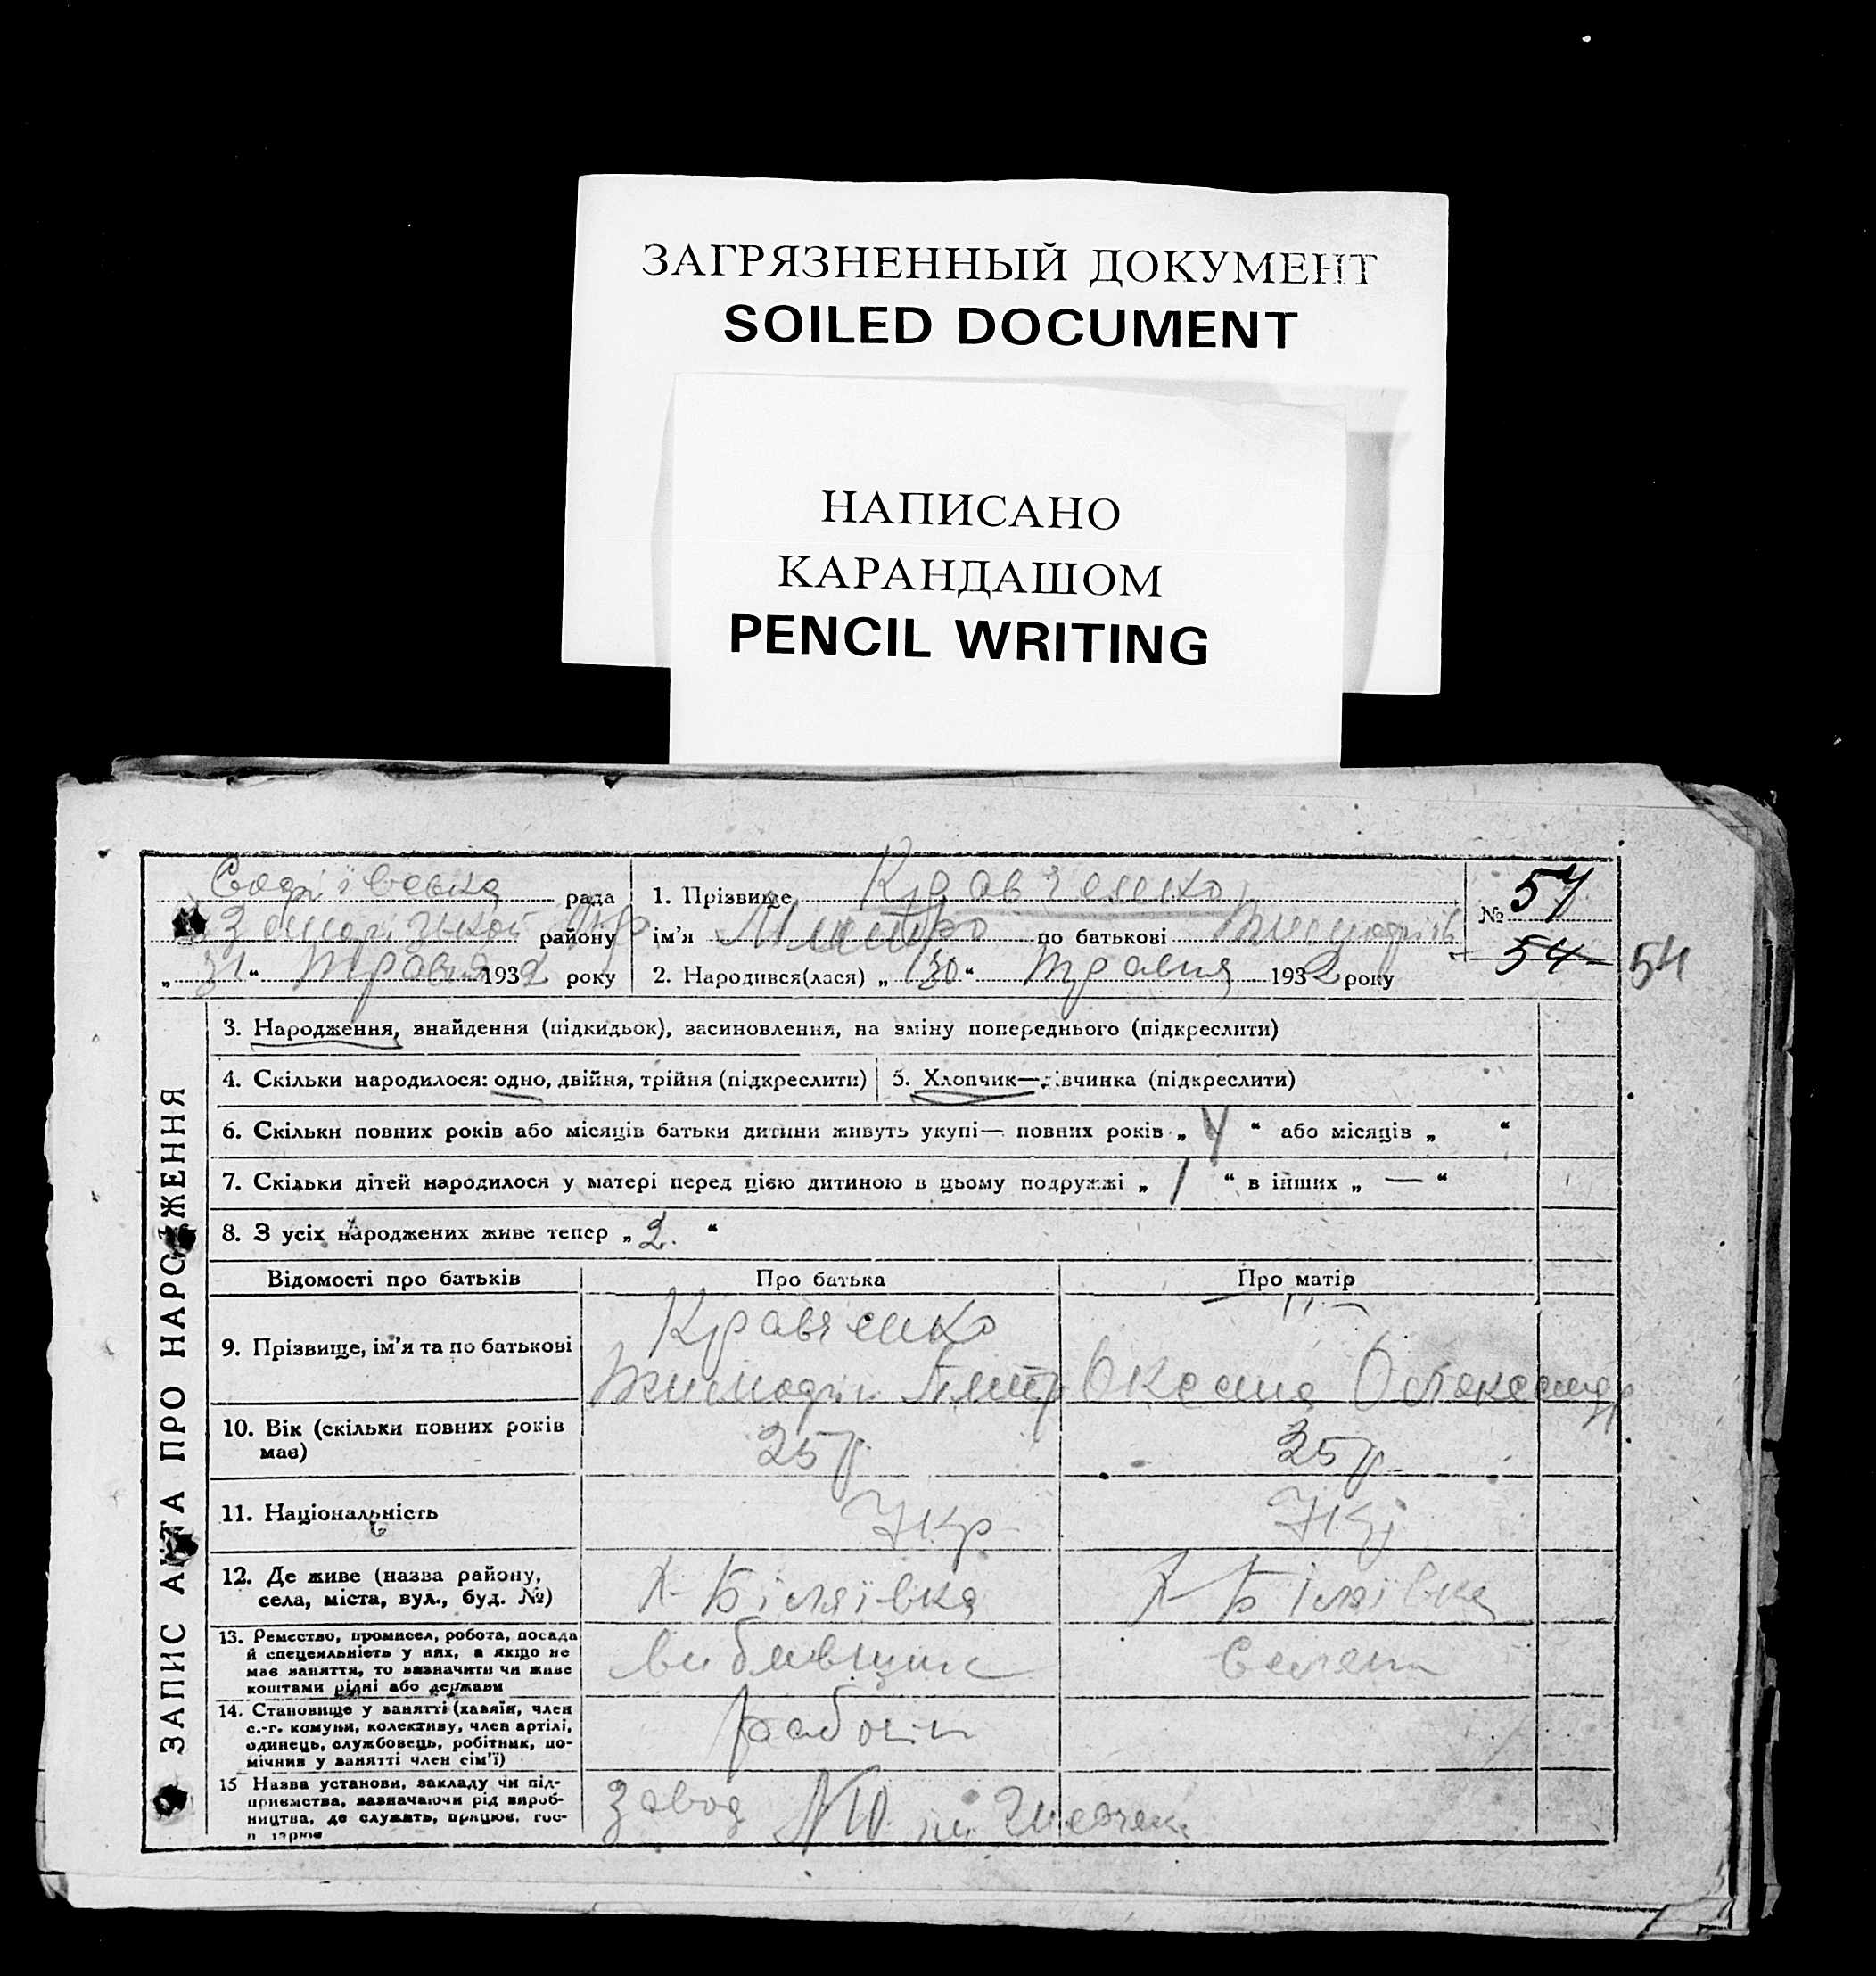 ЗАГРЯЗНЕННЫЙ ДОКУМЕНТ
SOILED DOCUMENT
НАПИСАНО
КАРАНДАШОМ
PENCIL WRITING
ЗАПИС АКТА ПРО НАРОДЖЕННЯ
Софіївська рада
району
„31“ травня 1932 року
1. Прізвище Кравченко
ім'я Дмитро по батькові
2. Народився(лася) „30“ травня 1932 року
№ 57
54
54
3. Народження, знайдення (підкидьок), засиновлення, на зміну попереднього (підкреслити)
4. Скільки народилося: одно, двійня, трійня (підкреслити)
5. Хлопчик—дівчинка (підкреслити)
6. Скільки повних років або місяців батьки дитини живуть укупі— повних років „ 4 “ або місяців „ “
7. Скільки дітей народилося у матері перед цією дитиною в цьому подружжі „ 1 “ в інших „ — “
8. З усіх народжених живе тепер „ 2. “
Відомості про батьків
Про батька
Про матір
9. Прізвище, ім'я та по батькові
Кравченко
Оксана
10. Вік (скільки повних років
має)
25 р.
25 р.
11. Національність
Укр
Укр
12. Де живе (назва району,
села, міста, вул., буд. №)
Х-Біляївка
Х-Біляївка
13. Ремество, промисел, робота, посада
й спеціяльність у них, а якщо не
має заняття, то зазначити чи живе
коштами рідні або держави
14. Становище у занятті (хазяїн, член
с.-г. комуни, колективу, член артілі,
одинець, службовець, робітник, по-
мічник у занятті член сім'ї)
рабочи
15 Назва установи, закладу чи під-
приємства, зазначаючи рід вироб-
ництва, де служить, працює, гос-
Завод №10